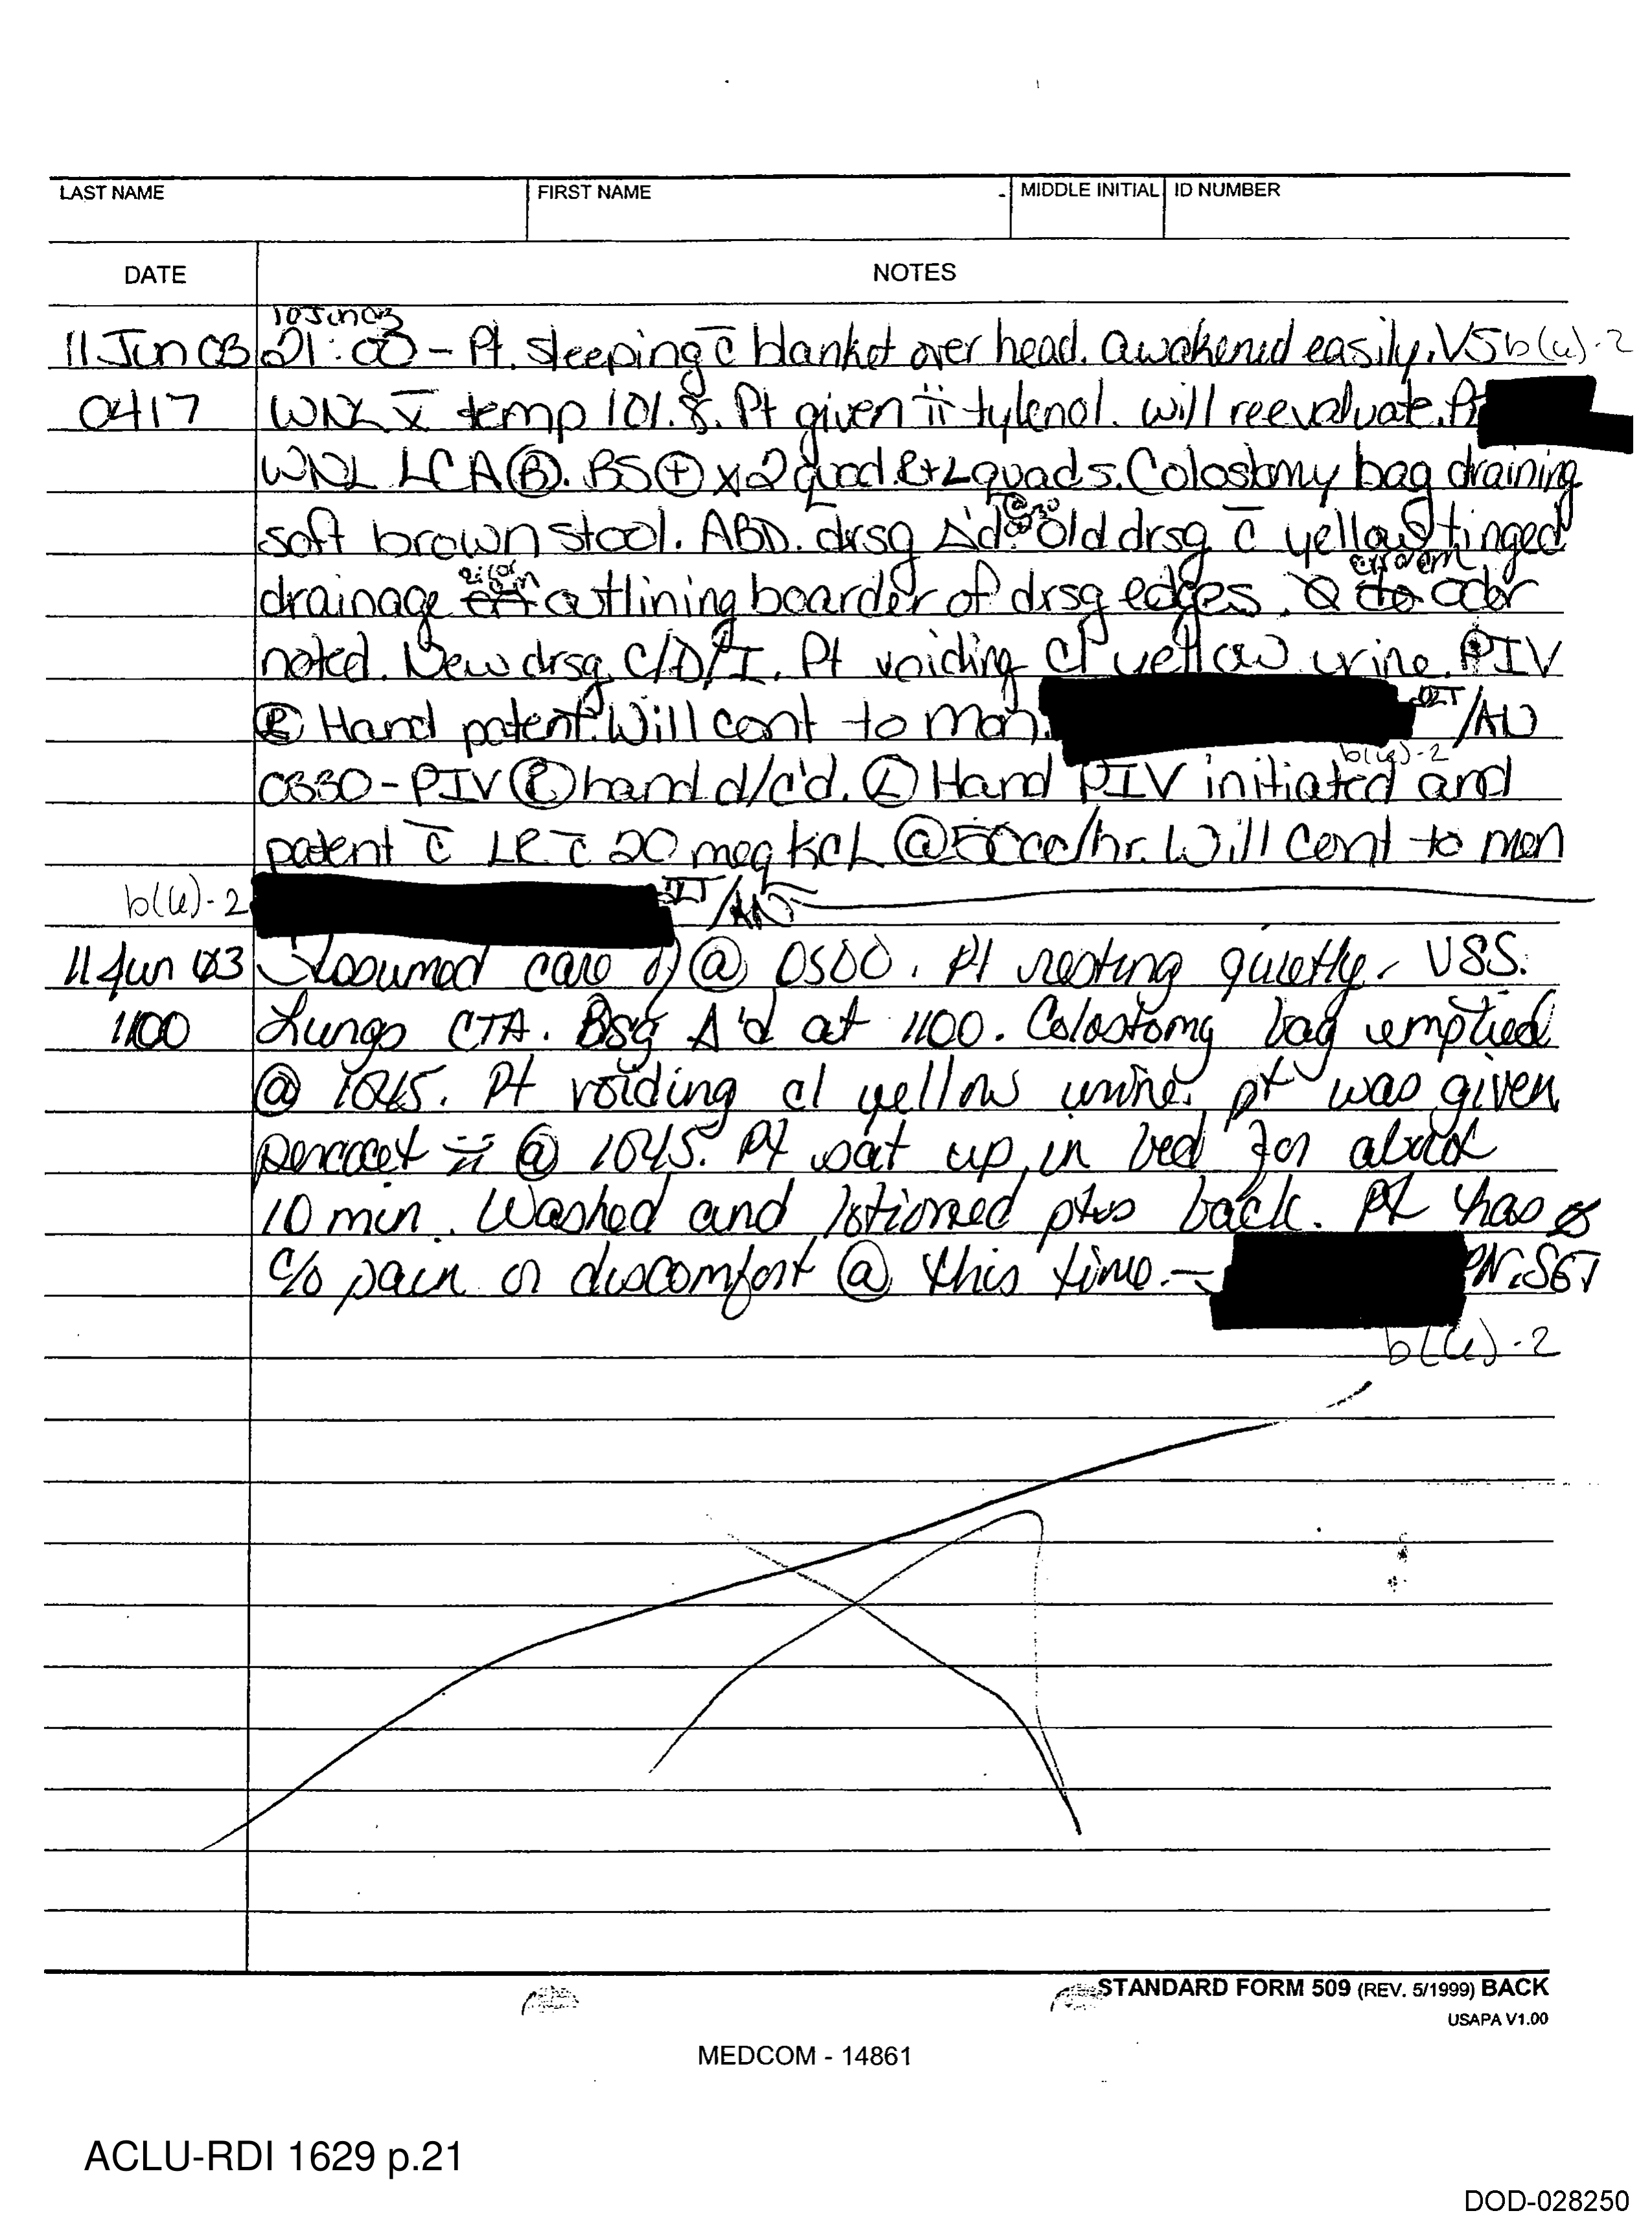 LAST NAME FIRST NAME MIDDLE INITIAL ID NUMBER
DATE NOTES
10 Jun 03
11 Jun 03 21:00 - Pt. sleeping c̄ blanket over head. awakened easily. VS b(6)-2
0417 WNL x̄ temp 101.8. Pt given ii tylenol. will reevaluate.
WNL LCA Ⓑ. BS ⊕ x 2 quad. R+L quads. Colostomy bag draining
soft brown stool. ABD. drsg Δ'd old drsg c̄ yellow tinged
drainage outlining boarder of drsg edges. odor
noted. New drsg C/D/I. Pt voiding cl yellow urine. PIV
Ⓡ Hand patent. Will cont to mon. /AN
b(6)-2
0330 - PIV Ⓡ hand d/c'd. Ⓛ Hand PIV initiated and
patent c̄ LR c̄ 20 meq KCL @ 50cc/hr. Will cont to mon
b(6)-2 /AN
11 Jun 03 Assumed care of @ 0500. Pt resting quietly. VSS.
1100 Lungs CTA. Dsg Δ'd at 1100. Colostomy bag emptied
@ 1045. Pt voiding cl yellow urine. pt was given
percocet ii @ 1045. Pt sat up in bed for about
10 min. Washed and lotioned back. Pt has ø
c/o pain or discomfort @ this time. — PN, SGT
b(6)-2
STANDARD FORM 509 (REV. 5/1999) BACK
USAPA V1.00
MEDCOM - 14861
ACLU-RDI 1629 p.21
DOD-028250